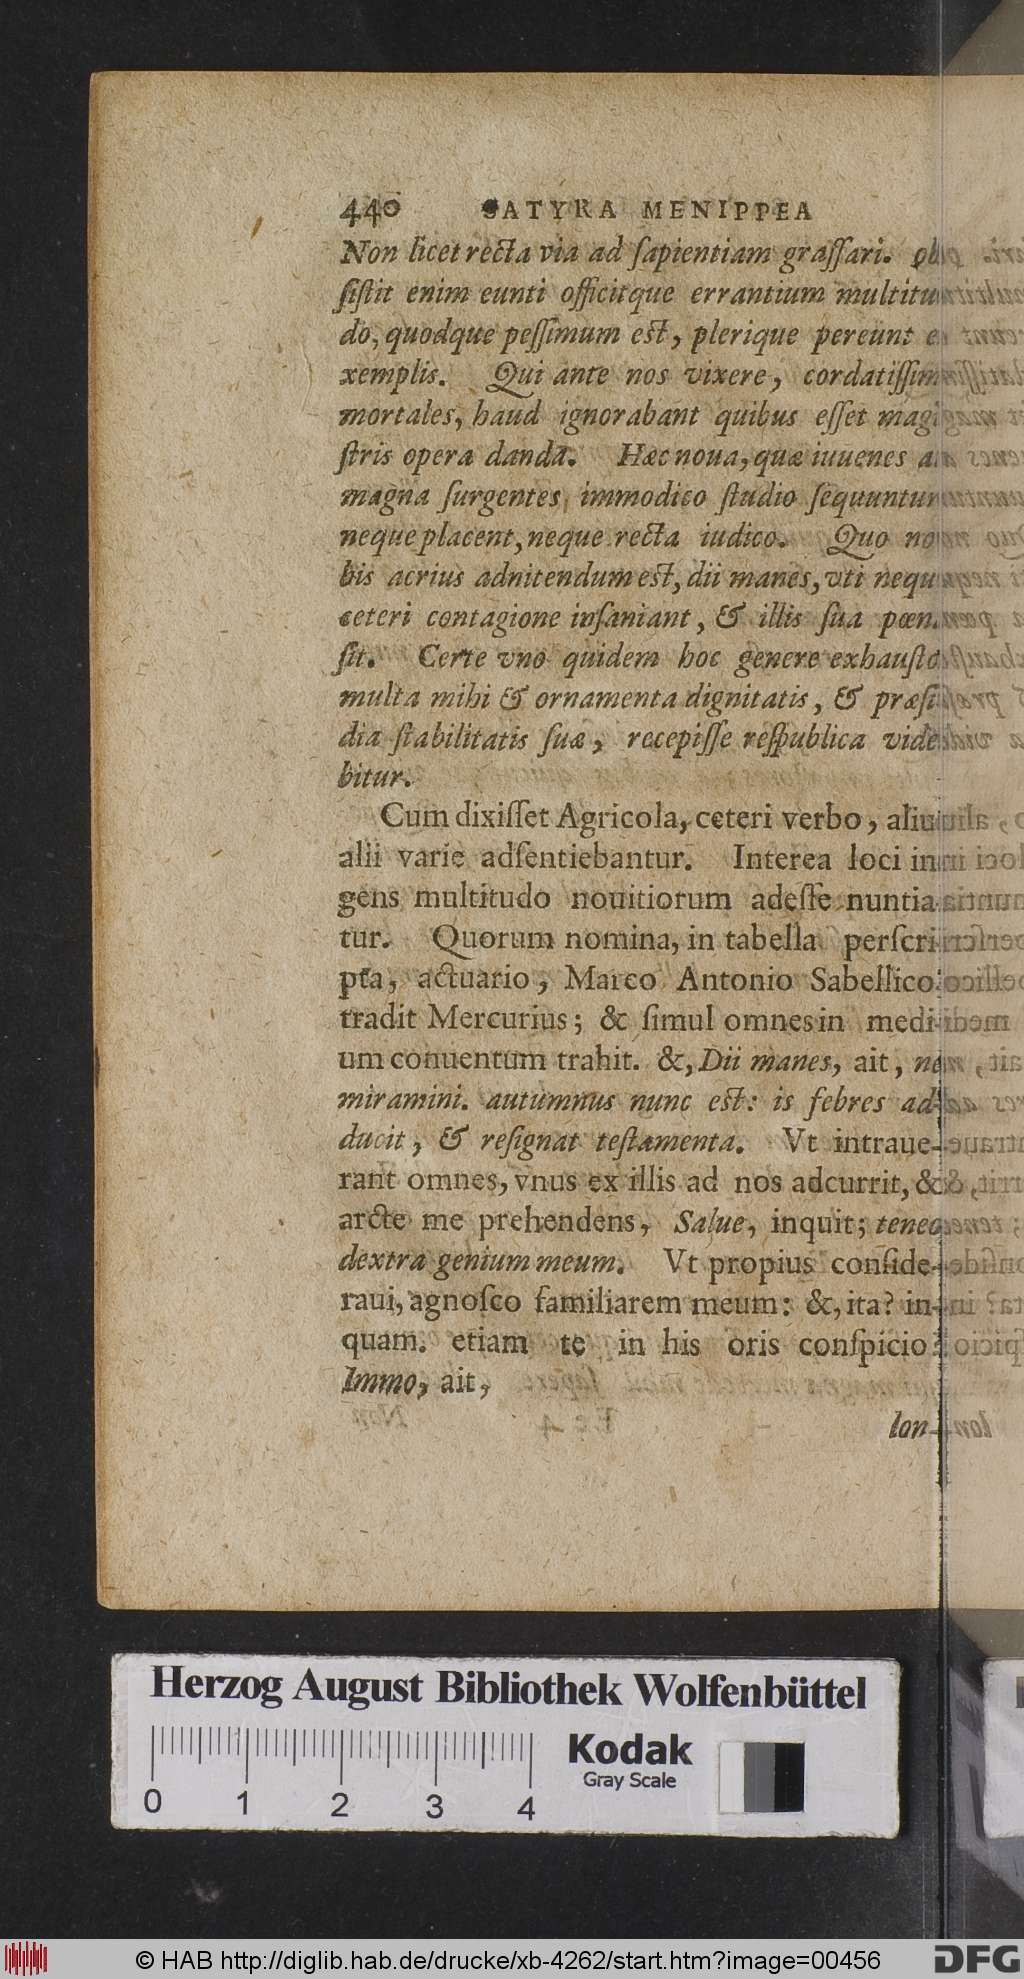 440 SATYRA MENIPPEA
Non licet recta via ad ſapientiam graſſari. ob-
ſiſtit enim eunti officitque errantium multitu-
do, quodque peſſimum est, plerique pereunt e-
xemplis. Qui ante nos vixere, cordatiſſimi
mortales, haud ignorabant quibus eſſet magi-
ſtris opera danda. Hæc noua, quæ iuuenes ad
magna ſurgentes immodico ſtudio ſequuntur
neque placent, neque recta iudico. Quo no-
bis acrius adnitendum est, dii manes, vti neque
ceteri contagione inſaniant, & illis ſua pœna
ſit. Certe vno quidem hoc genere exhauſto
multa mihi & ornamenta dignitatis, & præſi-
dia ſtabilitatis ſuæ, recepiſſe reſpublica vide-
bitur.
Cum dixiſſet Agricola, ceteri verbo, aliu
alii varie adſentiebantur. Interea loci in-
gens multitudo nouitiorum adeſſe nuntia-
tur. Quorum nomina, in tabella perſcri-
pta, actuario, Marco Antonio Sabellico
tradit Mercurius; & ſimul omnes in medi-
um conuentum trahit. &, Dii manes, ait, ne
miramini. autumnus nunc est: is febres ad-
ducit, & reſignat teſtamenta. Vt intraue-
rant omnes, vnus ex illis ad nos adcurrit, &
arcte me prehendens, Salue, inquit; teneo
dextra genium meum. Vt propius conſide-
raui, agnoſco familiarem meum: &, ita? in-
quam. etiam te in his oris conſpicio?
Immo, ait,
lon-
Herzog August Bibliothek Wolfenbüttel
0 1 2 3 4
Kodak
Gray Scale
© HAB http://diglib.hab.de/drucke/xb-4262/start.htm?image=00456
DFG